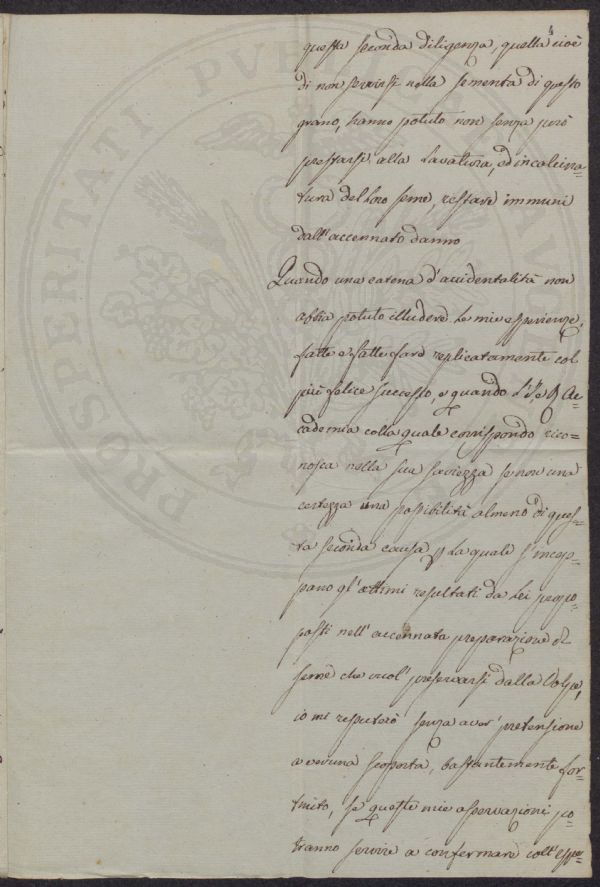 4
questa seconda diligenza, quella cioè
di non servirsi nella sementa di questo
grano, hanno potuto non senza però
prestarsi alla Lavatura, ed incalcina=
tura del Loro seme, restare immuni
dall'accennato danno
Quando una catena d'accidentalità non
abbia potuto illudere le mie esperienze,
fatte e fatte fare replicatamente col
più felice successo, e quando l'I. e R. Ac=
cademia colla quale corrispondo rico=
nosca nella sua saviezza se non una
certezza una possibilità almeno di ques=
ta seconda causa, la quale s'incep=
pano gl'ottimi resultati da Lei propo
posti nell'accennata preparazione di
seme che vuol preservarsi dalla Volpe,
io mi reputerò senza aver pretensione
a veruna scoperta, bastantemente for=
tunato, se queste mie osservazioni po=
tranno servire a confermare coll'espe=
PROSPERITATI PUBLICAE